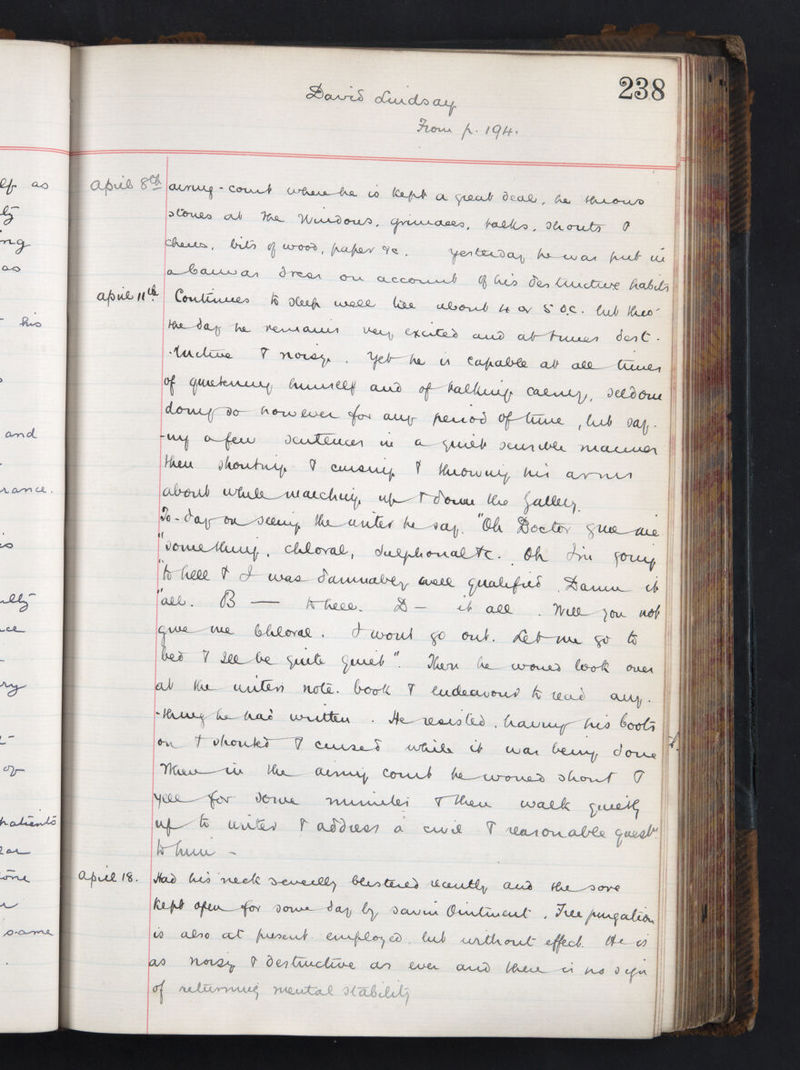 238
David Lindsay
From p. 194.
April 8th airing-court where he is kept a great deal, he throws
stones at the Windows, grimaces, talks, shouts &
chews, bits of wood, paper &c. Yesterday he was put in
a Canvas dress on account of his destructive habits
April 11th. Continues to sleep well till about 4 or 5 o.c. but thro'
the day he remains very excited and at times dest-
-ructive & noisy. Yet he is capable at all times
of quietening himself and of talking calmly, seldom
doing so however for any period of time, but say-
-ing a few sentences in a quiet sensible manner
then shouting & cursing & throwing his arms
about while marching up & down the Gallery.
To-day on seeing the writer he say. "Oh Doctor give me
"something, chloral, sulphonal &c. Oh I'm going
"to hell & I was damnably well qualified. Damn it
"all. B — to hell. D — it all. Will you not
give me Chloral. I wont go out. Let me go to
bed & I'll be quite quiet". Then he would look over
at the writers note-book & endeavour to read any-
-thing he had written. He resisted, having his boots
on & shouted & cursed while it was being done
When in the airing court he would shout &
yell for some minutes & then walk quietly
up to writer & address a civil & reasonable questn
to him -
April 18. Had his neck severely blistered recently and the sore
kept open for some day by savin Ointment. Free purgation
is also at present employed, but without effect. He is
as noisy & destructive as ever and there is no sign
of returning mental stability
lf as
ty
ng
as
his
and
rance.
is
lly
ce
ry
or
patients
one
same